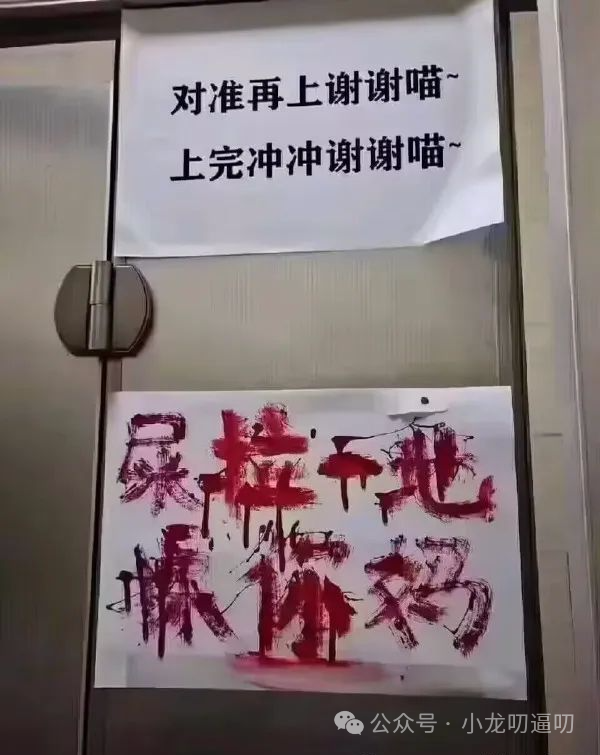 对准再上谢谢喵~
上完冲冲谢谢喵~
尿拉一地
恨你妈
公众号·小龙叨逼叨